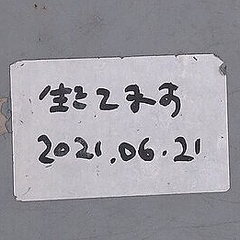 生きてます
2021.06.21